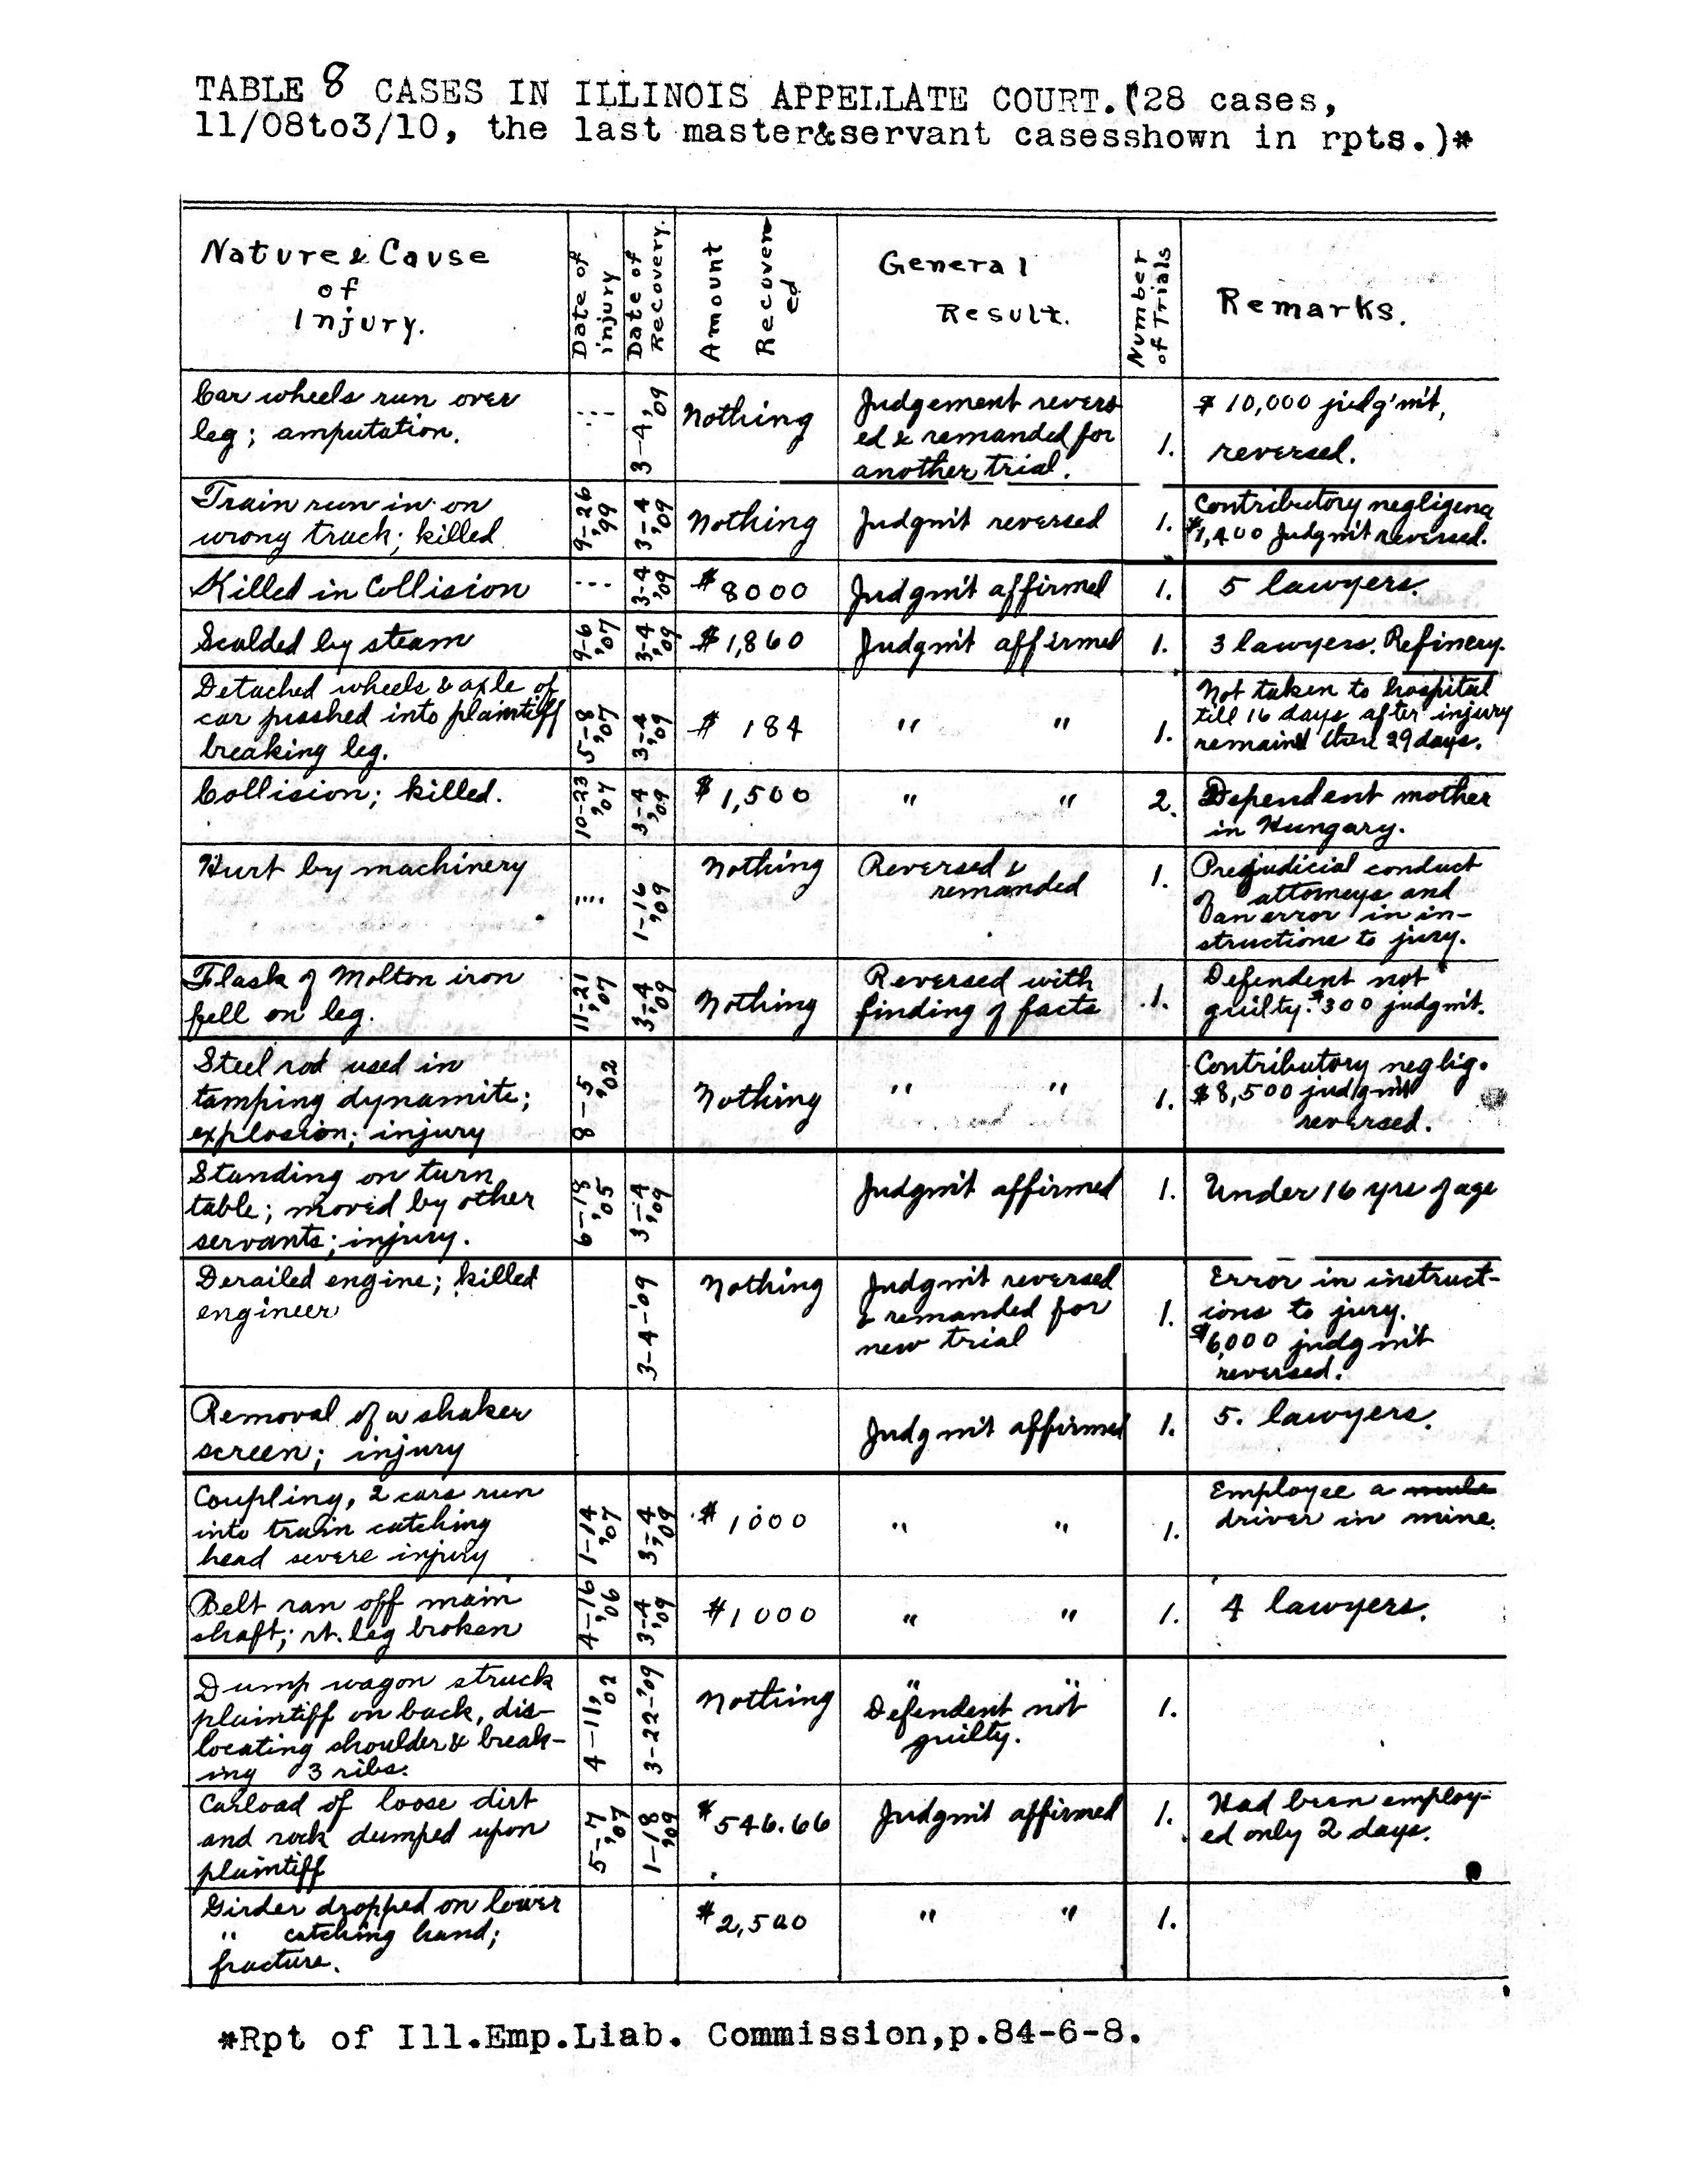 TABLE 8 CASES IN ILLINOIS APPELLATE COURT. (28 cases,
11/08to3/10, the last master&servant casesshown in rpts.)*
Nature & Cause
of
Injury.
Date of
injury
Date of
Recovery.
Amount
Recover
ed
General
Result.
Number
of Trials
Remarks.
Car wheels run over
leg; amputation.
...
3-4,'09
Nothing
Judgement revers
ed & remanded for
another trial.
1.
$10,000 judg'm't,
reversed.
Train run in on
wrong track; killed
9-26
'99
3-4
'09
Nothing
Judgm't reversed
1.
Contributory negligence
$1,400 Judgm't reversed.
Killed in Collision
...
3-4
'09
$8000
Judgm't affirmed
1.
5 lawyers.
Scalded by steam
9-6
'07
3-4
'09
$1,860
Judgm't affirmed
1.
3 lawyers. Refinery.
Detached wheels & axle of
car pushed into plaintiff
breaking leg.
5-8
'07
3-4
'09
$ 184
" "
1.
Not taken to hospital
till 16 days after injury
remain'd there 29 days.
Collision; killed.
10-23
'04
3-4
'09
$1,500
" "
2.
Dependent mother
in Hungary.
Hurt by machinery
....
1-16
'09
Nothing
Reversed &
remanded
1.
Prejudicial conduct
of attorneys and
an error in in-
structions to jury.
Flask of Molton iron
fell on leg.
11-21
'07
3-4
'09
Nothing
Reversed with
finding of facts
1.
Defendent not
guilty. $300 judgm't.
Steel rod used in
tamping dynamite;
explosion; injury
8-5
'02
Nothing
" "
1.
Contributory neglig.
$8,500 judgm't
reversed.
Standing on turn
table; moved by other
servants; injury.
6-18
'05
3-4
'09
Judgm't affirmed
1.
Under 16 yrs of age
Derailed engine; killed
engineer
3-4-'09
Nothing
Judgm't reversed
& remanded for
new trial
1.
Error in instruct-
ions to jury.
$6,000 judgm't
reversed.
Removal of a shaker
screen; injury
Judgm't affirmed
1.
5. lawyers.
Coupling, 2 cars run
into train catching
head severe injury
1-14
'07
3-4
'09
$1000
" "
1.
Employee a mule
driver in mine.
Belt ran off main
shaft; rt. leg broken
4-16
'06
3-4
'09
$1000
" "
1.
4 lawyers.
Dump wagon struck
plaintiff on back, dis-
locating shoulder & break-
ing 3 ribs.
4-11,
'02
3-22-'09
Nothing
" "
Defendent not
guilty.
1.
Carload of loose dirt
and rock dumped upon
plaintiff
5-7
'07
1-18
'09
$546.66
Judgm't affirmed
1.
Had been employ-
ed only 2 days.
Girder dropped on lower
" catching hand;
fracture.
$2,500
" "
1.
*Rpt of Ill.Emp.Liab. Commission,p.84-6-8.